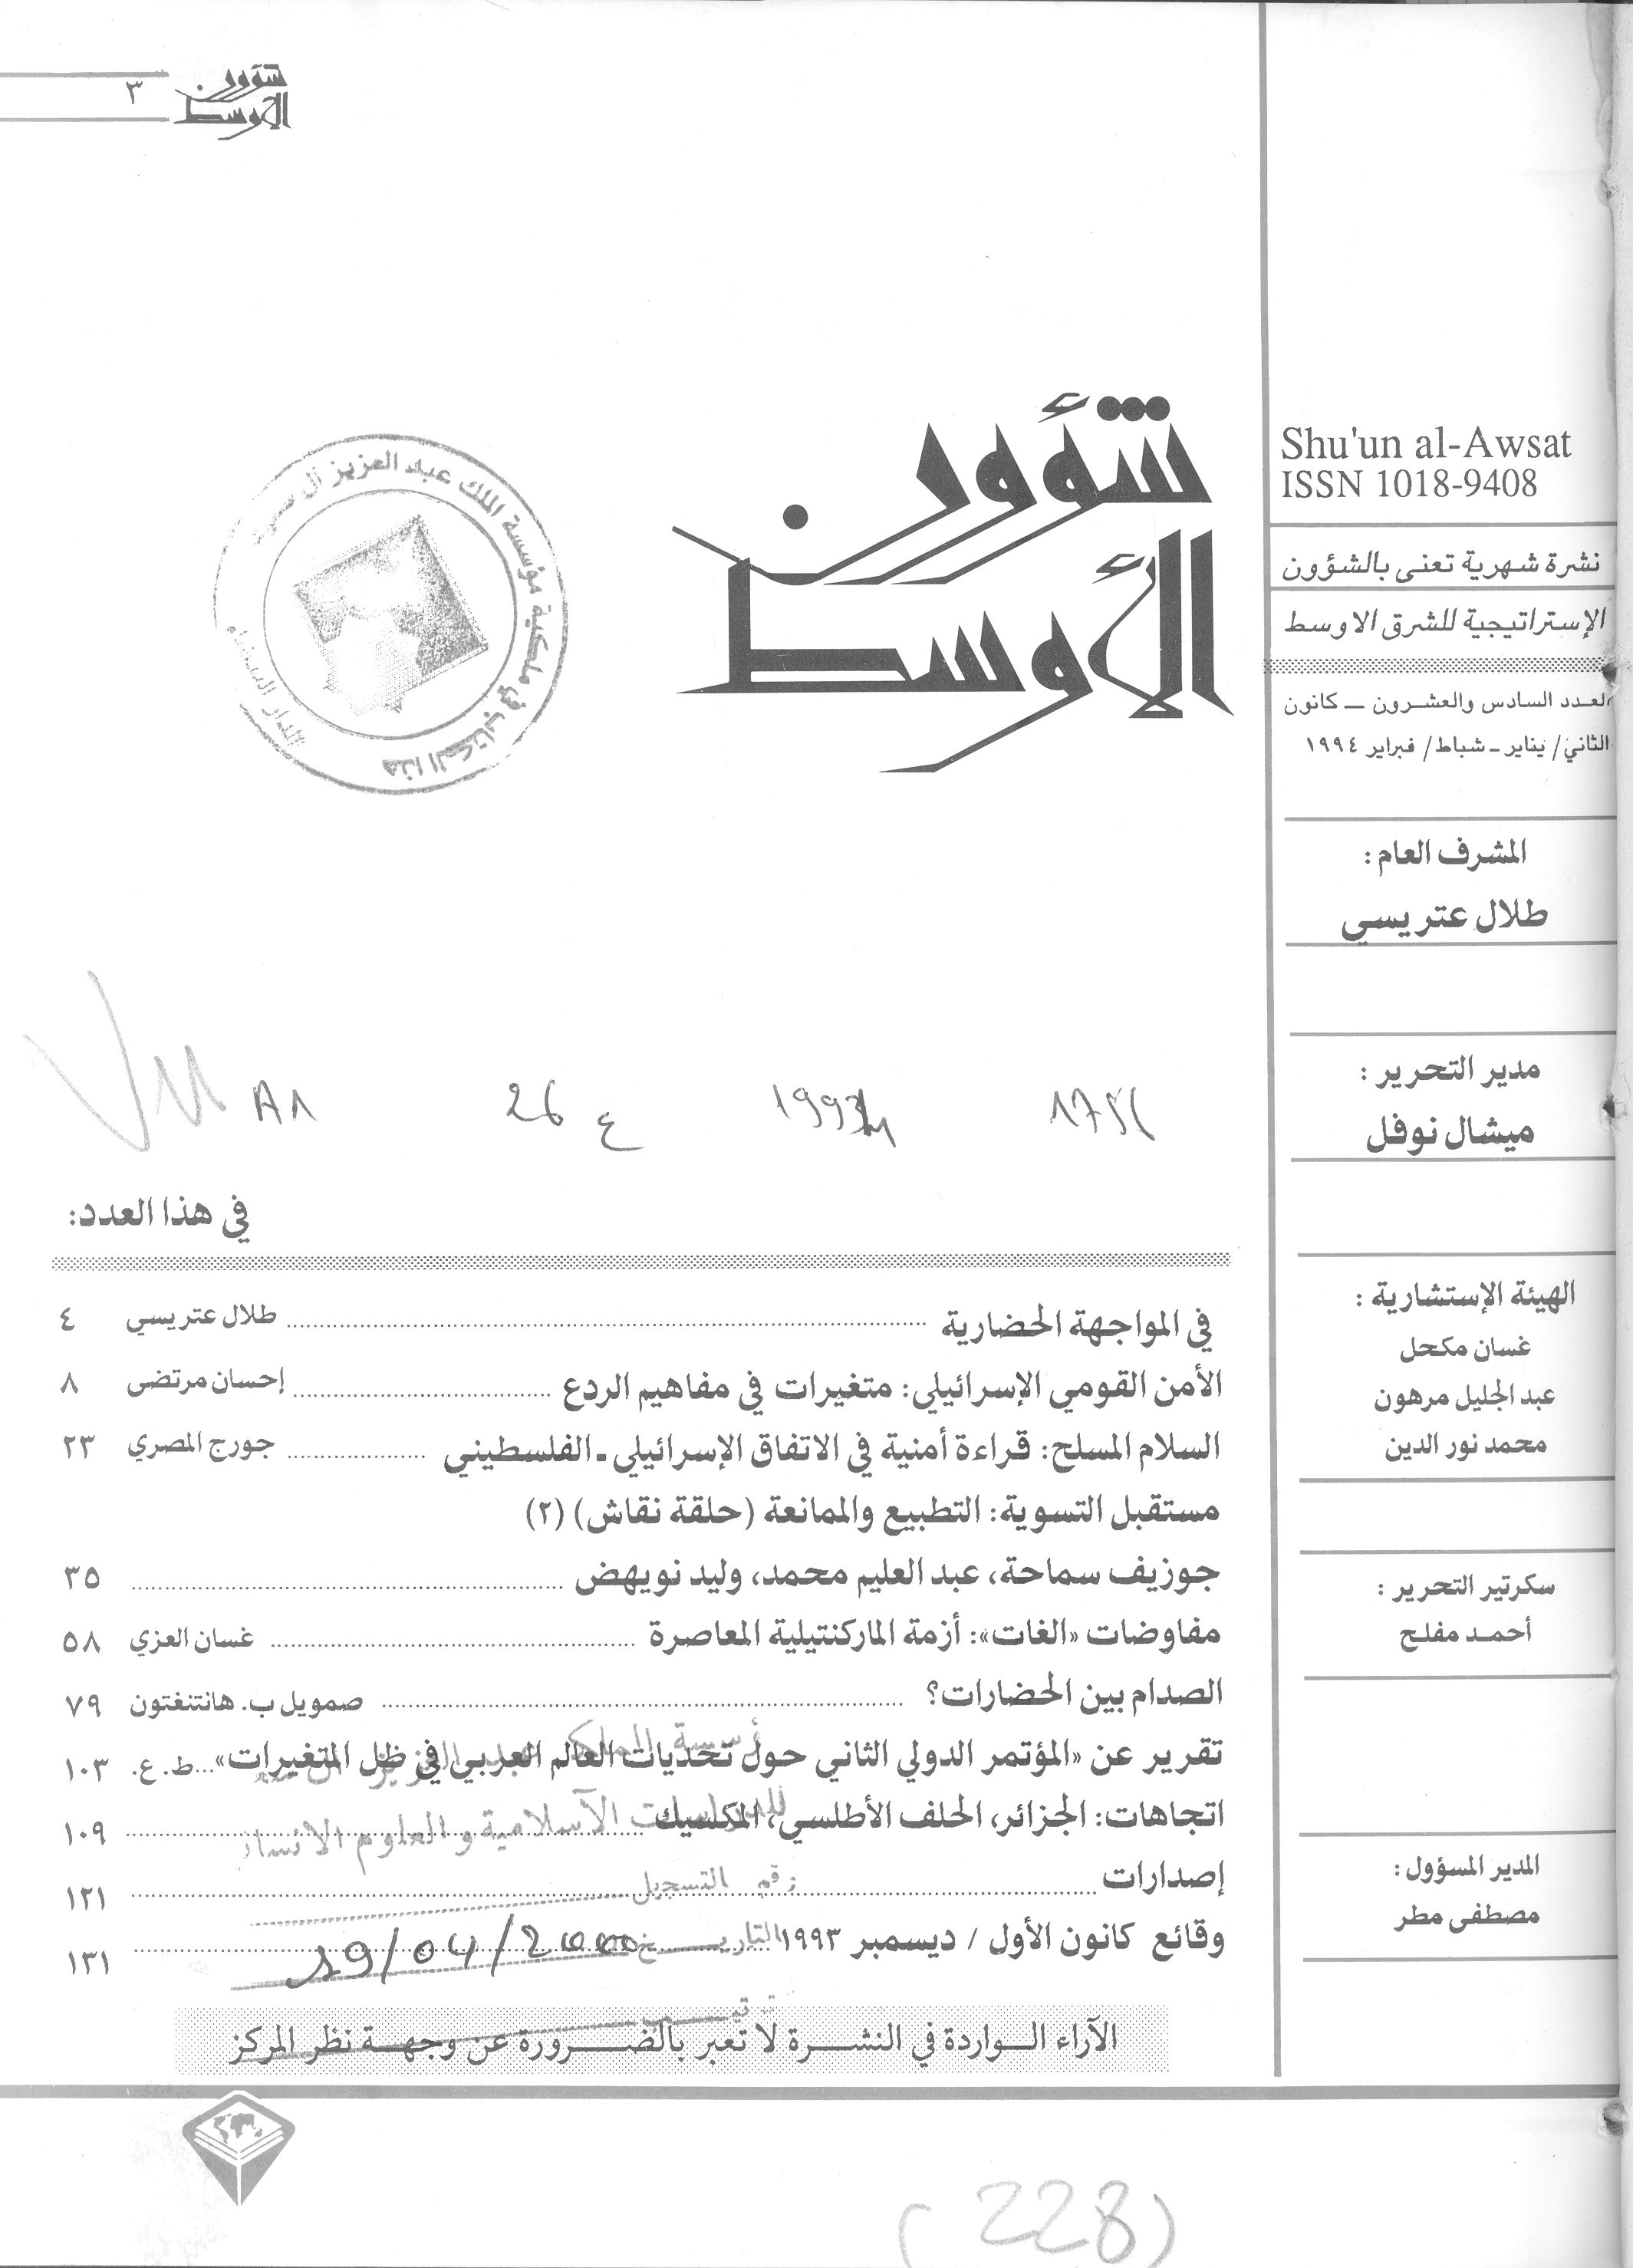 ٣
شؤون
الأوسط
شؤون
الأوسط
Shu'un al-Awsat
ISSN 1018-9408
نشرة شهرية تعنى بالشؤون
الإستراتيجية للشرق الاوسط
لعدد السادس والعشرون – كانون
الثاني/ يناير - شباط/ فبراير ١٩٩٤
المشرف العام :
طلال عتريسي
مدير التحرير :
ميشال نوفل
الهيئة الإستشارية :
غسان مكحل
عبد الجليل مرهون
محمد نور الدين
سكرتير التحرير :
أحمد مفلح
المدير المسؤول :
مصطفى مطر
مؤسسة الملك عبد العزيز آل سعود
هذا الكتاب في ملكية
الدار البيضاء
A1 26 ع
في هذا العدد:
في المواجهة الحضارية ... طلال عتريسي ٤
الأمن القومي الإسرائيلي: متغيرات في مفاهيم الردع ... إحسان مرتضى ٨
السلام المسلح: قراءة أمنية في الاتفاق الإسرائيلي - الفلسطيني ... جورج المصري ٢٣
مستقبل التسوية: التطبيع والممانعة (حلقة نقاش) (٢)
جوزيف سماحة، عبد العليم محمد، وليد نويهض ... ٣٥
مفاوضات «الغات»: أزمة الماركنتيلية المعاصرة ... غسان العزي ٥٨
الصدام بين الحضارات؟ ... صمويل ب. هانتنغتون ٧٩
تقرير عن «المؤتمر الدولي الثاني حول تحديات العالم العربي في ظل المتغيرات» ... ط. ع. ١٠٣
اتجاهات: الجزائر، الحلف الأطلسي، المكسيك ... ١٠٩
إصدارات ... ١٢١
وقائع كانون الأول / ديسمبر ١٩٩٣ ... ١٣١
للدراسات الآسلامية و العلوم الانسانية
رقم التسجيل
التاريخ 19/04/2000
الآراء الواردة في النشرة لا تعبر بالضرورة عن وجهة نظر المركز
(228)